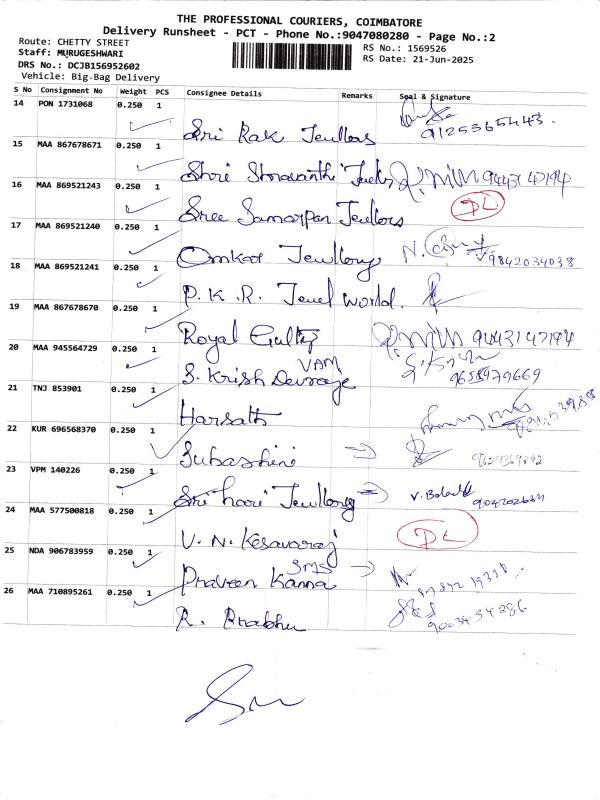 THE PROFESSIONAL COURIERS, COIMBATORE
Delivery Runsheet - PCT - Phone No.:9047080280 - Page No.:2
Route: CHETTY STREET
Staff: MURUGESHWARI
DRS No.: DCJB156952602
Vehicle: Big-Bag Delivery
RS No.: 1569526
RS Date: 21-Jun-2025
S No Consignment No Weight PCS Consignee Details Remarks Seal & Signature
14 PON 1731068 0.250 1
Sri Rak Jewllors 9125365443.
15 MAA 867678671 0.250 1
Shri 94431 47194
16 MAA 869521243 0.250 1
Sree Samarpan Jewllors DL
17 MAA 869521240 0.250 1
Omkar Jewllory 9842034038
18 MAA 869521241 0.250 1
P. K. R. Jewel World.
19 MAA 867678670 0.250 1
Royal 94431 47194
20 MAA 945564729 0.250 1
S. Krish VAM
21 TNJ 853901 0.250 1
Harsath
22 KUR 696568370 0.250 1
Subashini →
23 VPM 140226 0.250 1
Sri hari Jewllory →
24 MAA 577500818 0.250 1
V. N. Kesavaraj DL
25 NDA 906783959 0.250 1
Praveen Kanna SMS →
26 MAA 710895261 0.250 1
R. Prabhu 9003434286